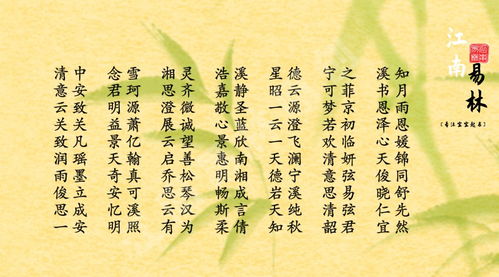 江南
易林
知月雨恩媛锦同舒先然
溪书恩泽心天俊晓仁宜
之菲京初临妍弦易弦君
宁可梦若欢清意思清韶
德云源澄飞澜宁溪纯秋
星昭一云一天德岩天知
溪静圣蓝欣南湘成言倩
浩嘉敬心景惠明畅斯柔
灵齐微诚望善松琴汉为
湘思澄展云启乔思云有
雪珂源萧亿翰真可溪照
念君明益景天奇安忆明
中安致关凡瑶墨立成安
清意云关致润雨俊思一